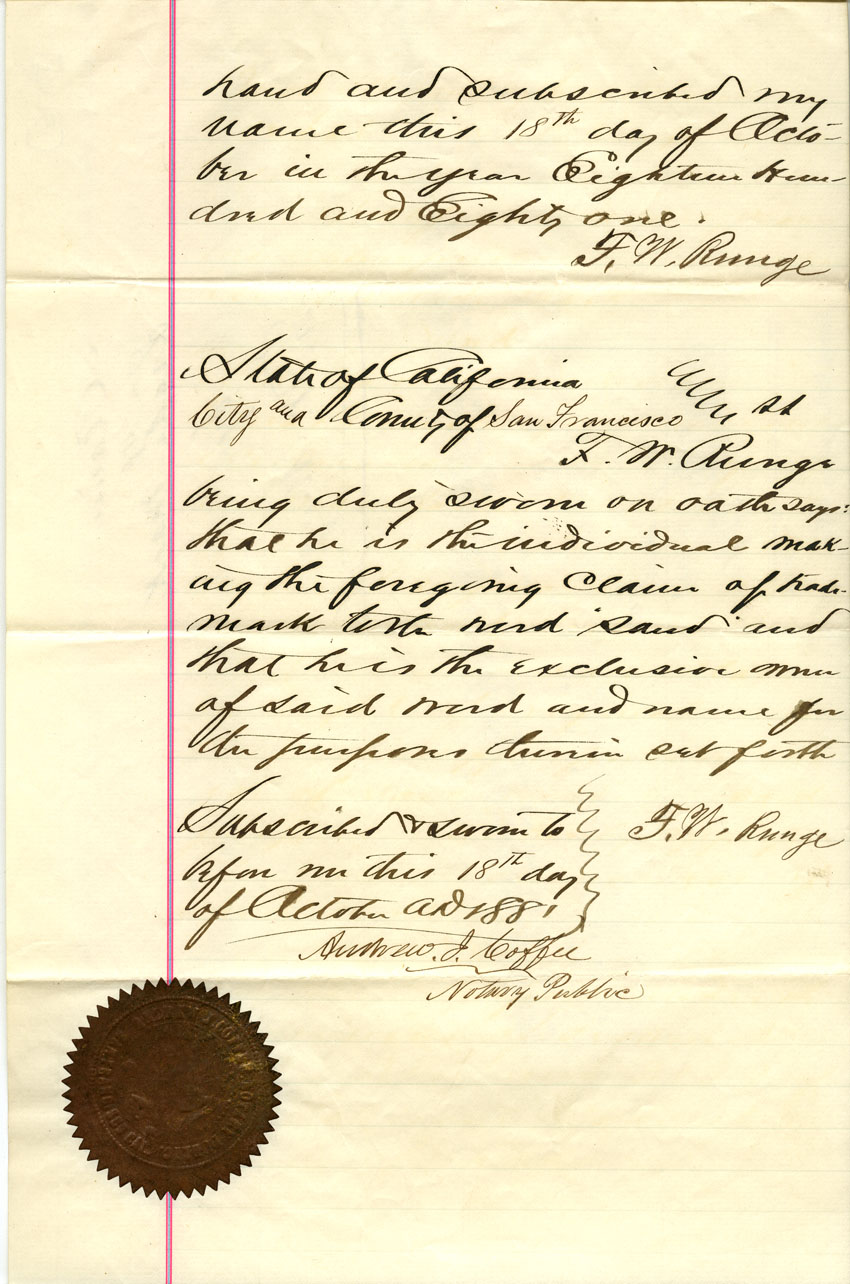 hand and subscribed my
name this 18th day of Octo-
ber in the year Eighteen Hun-
dred and Eighty one.
F. W. Runge
State of California
City and County of San Francisco ss
F. W. Runge
being duly sworn on oath says:
that he is the individual mak-
ing the foregoing Claim of trade-
mark to the word "Sand" and
that he is the exclusive owner
of said word and name for
the purposes herein set forth
Subscribed & sworn to F. W. Runge
before me this 18th day
of October AD 1881
Andrew. J. Coffee
Notary Public